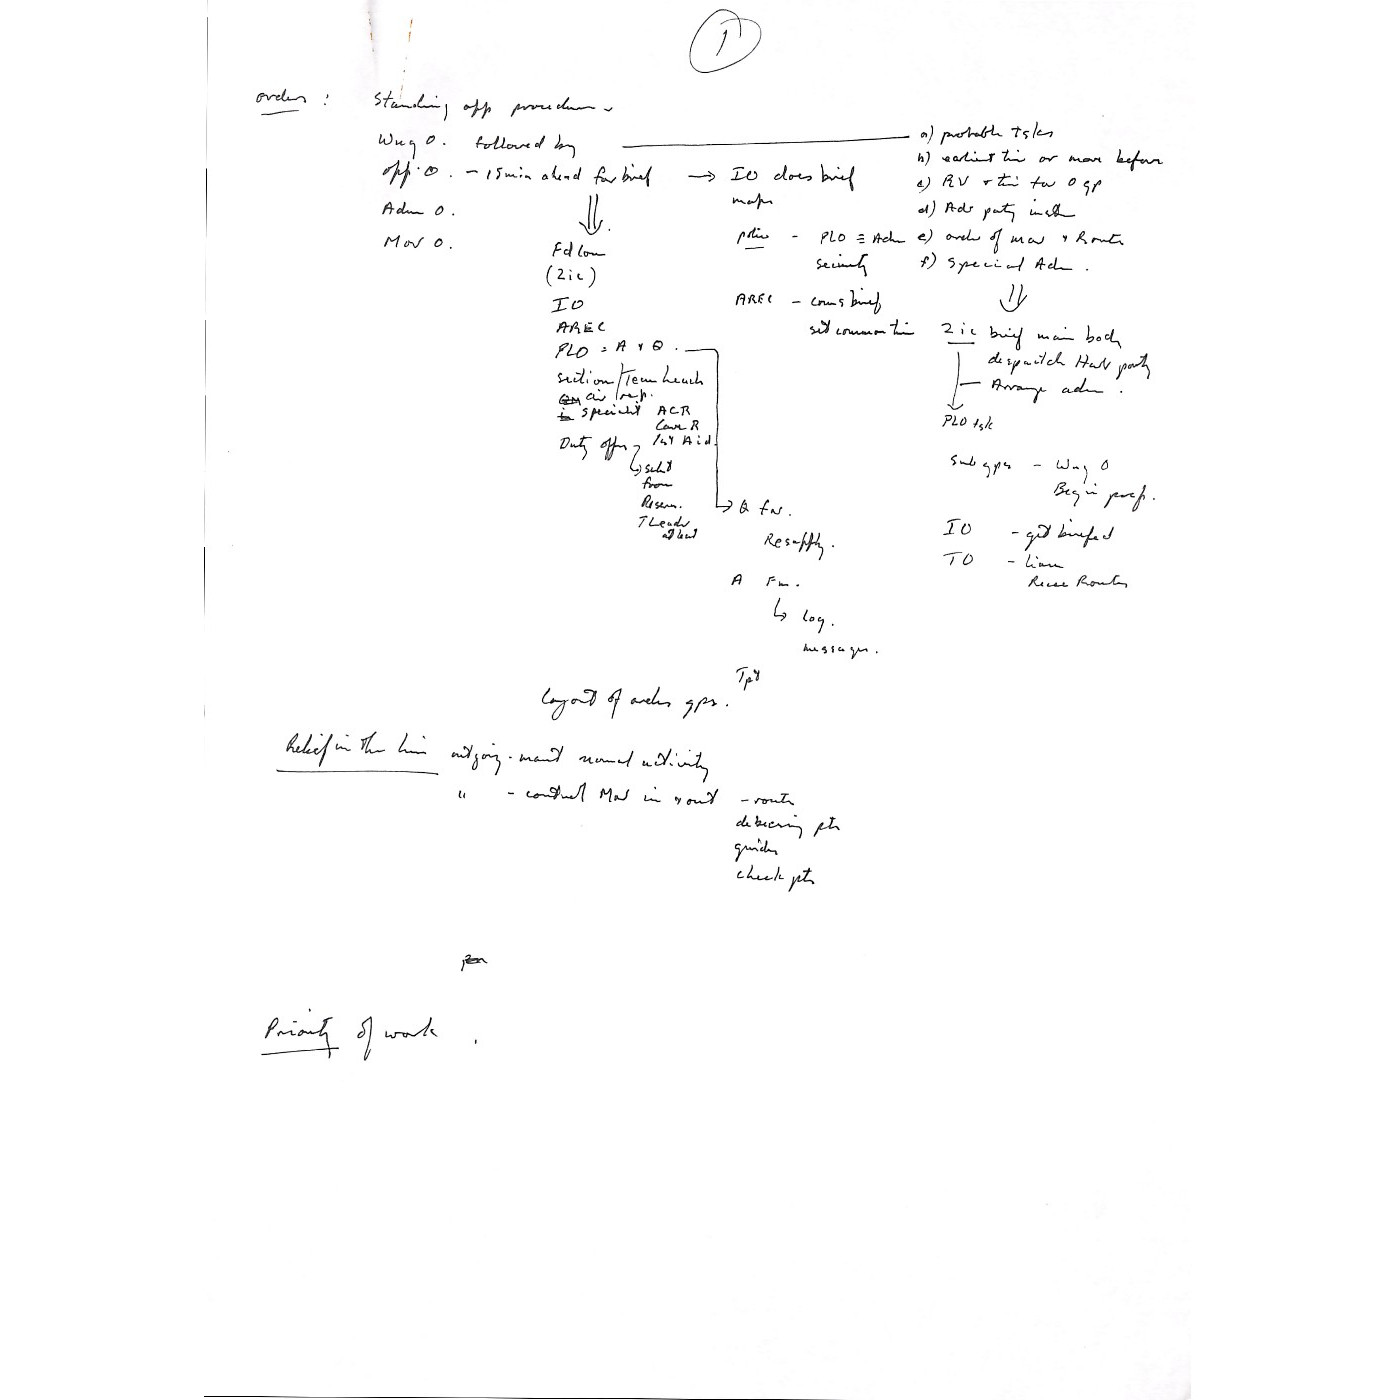 1
orders : Standing opp procedure
Wng O. followed by
opp. O. - 15 min ahead for brief → IO does brief
maps
Adm O.
Mov O.
a) probable tsks
b) earliest tim or move before
c) RV + tim for O gp
d) Adv party
e) order of mov + Route
f) Special Adm.
Fd Com
(2ic)
IO
AREC
PLO = A + Q.
section/Team leads
air rep.
specialist ACR
Cave R
1st Aid
Duty offr
select
from
Reserve.
T Leader
at least
police - PLO ≡ Adm
security
AREC - coms brief
set common tim
Q fn.
Resupply.
A Fn.
↳ log.
messages.
Tpt
2ic brief main body
despatch Harb party
- Arrange adm.
PLO tsk
Sub gps - Wng O
Begin prep.
IO - get briefed
TO - liase
Recce Routes
Layout of orders gps.
Relief in the line outgoing - maint normal activity
" - control Mov in + out - route
debussing pts
guides
check pts
Priority of work.